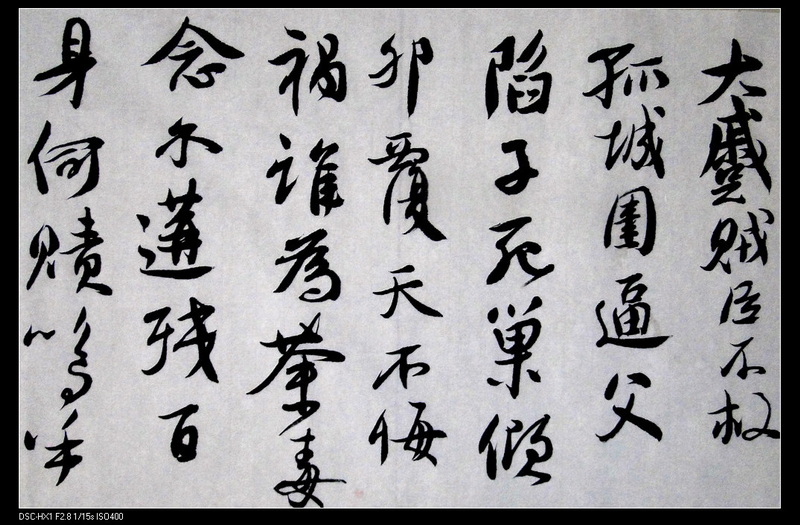 大蹙賊臣不救
孤城圍逼父
陷子死巢傾
卵覆天不悔
禍誰為荼毒
念尔遘殘百
身何贖嗚呼
DSC-HX1 F2.8 1/15s ISO400